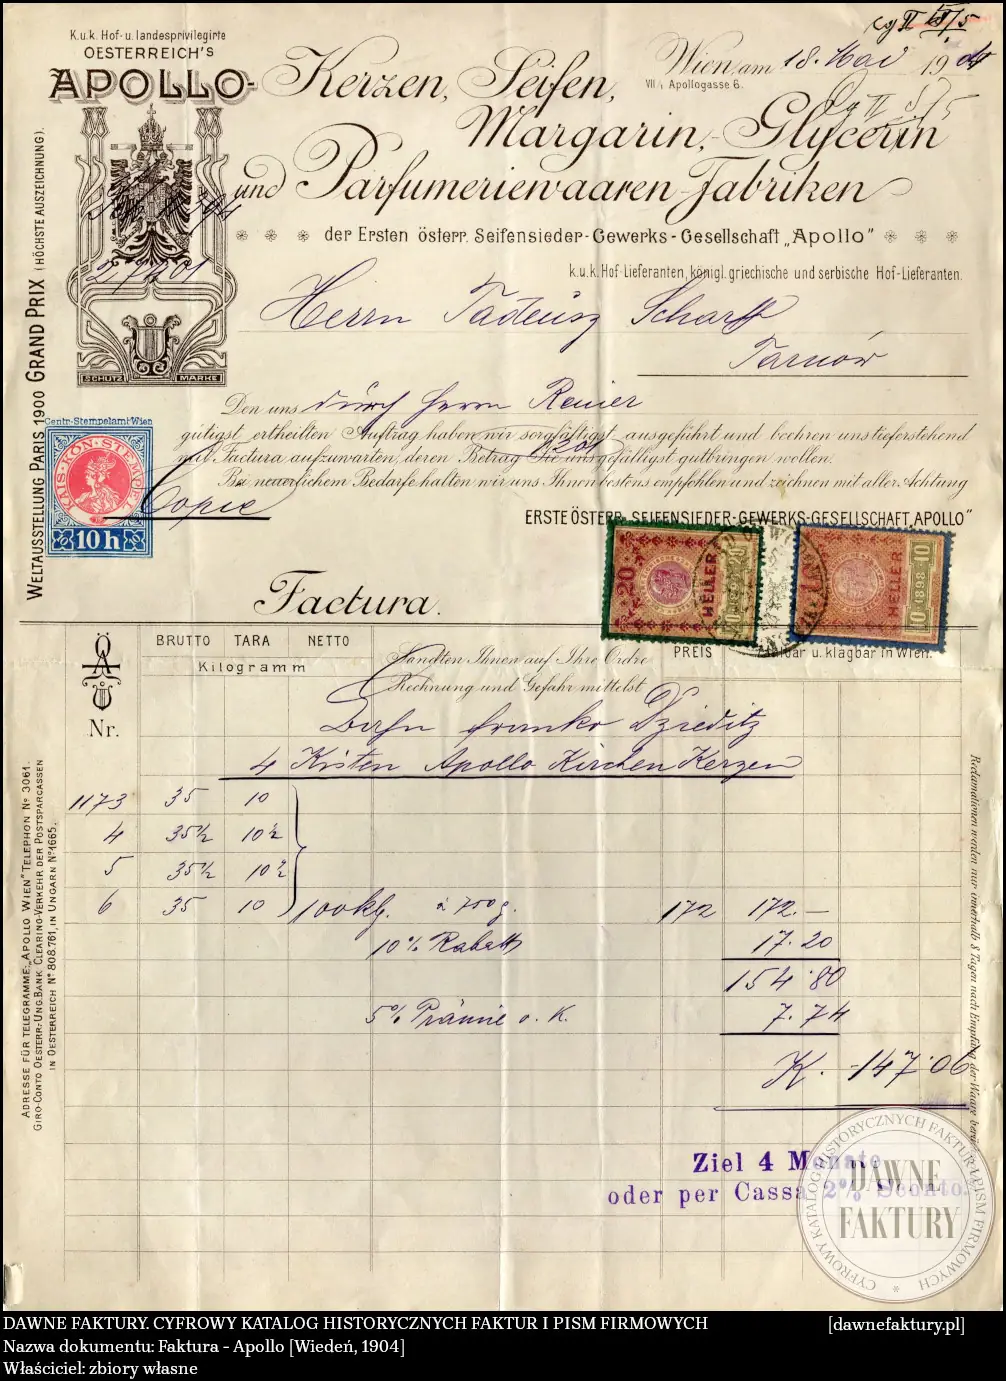 K.u.k. Hof- u. landesprivilegirte
OESTERREICH'S
APOLLO-Kerzen, Seifen,
Margarin,- Glycerin
und Parfumeriewaaren-Fabriken
Wien am 18. Mai 1904
VII/1 Apollogasse 6.
der Ersten österr. Seifensieder-Gewerks-Gesellschaft „Apollo"
k.u.k. Hof-Lieferanten, königl. griechische und serbische Hof-Lieferanten.
WELTAUSSTELLUNG PARIS 1900 GRAND PRIX (HÖCHSTE AUSZEICHNUNG).
27401
SCHUTZ MARKE
Herrn Tadeusz Scharff
Tarnów
Den uns durch Herrn Reiner
gütigst ertheilten Auftrag haben wir sorgfältigst ausgeführt und beehren uns tieferstehend
mit Factura aufzuwarten, deren Betrag Sie uns gefälligst gutbringen wollen.
Bei neuerlichem Bedarfe halten wir uns Ihnen bestens empfohlen und zeichnen mit aller Achtung
Copie
ERSTE ÖSTERR. SEIFENSIEDER-GEWERKS-GESELLSCHAFT „APOLLO"
Centr-Stempelamt Wien
KAIS·KÖN·STEMPEL
10 h
20 HELLER 20
1898
10 HELLER 10
10 1898
Factura.
BRUTTO TARA NETTO
Kilogramm
Sandten Ihnen auf Ihre Ordre
Rechnung und Gefahr mittelst
PREIS
Zahlbar u. klagbar in Wien.
ÖA
Nr.
Bahn franko Dzieditz
4 Kisten Apollo Kirchen Kerzen
1173 35 10
4 35½ 10½
5 35½ 10½
6 35 10 100 kg. à 700g. 172 172.—
10% Rabatt 17.20
154.80
5% Prämie o. K. 7.74
K. 147.06
Ziel 4 Monate
oder per Cassa 2% Sconto.
ADRESSE FÜR TELEGRAMME: „APOLLO WIEN" TELEPHON No 3061.
GIRO-CONTO OESTERR.-UNG. BANK. CLEARING-VERKEHR DER POSTSPARCASSEN
IN OESTERREICH No 808.761, IN UNGARN No 1665.
Reclamationen werden nur innerhalb 8 Tagen nach Empfang der Waare
CYFROWY KATALOG HISTORYCZNYCH FAKTUR I PISM FIRMOWYCH
DAWNE
FAKTURY
DAWNE FAKTURY. CYFROWY KATALOG HISTORYCZNYCH FAKTUR I PISM FIRMOWYCH [dawnefaktury.pl]
Nazwa dokumentu: Faktura - Apollo [Wiedeń, 1904]
Właściciel: zbiory własne